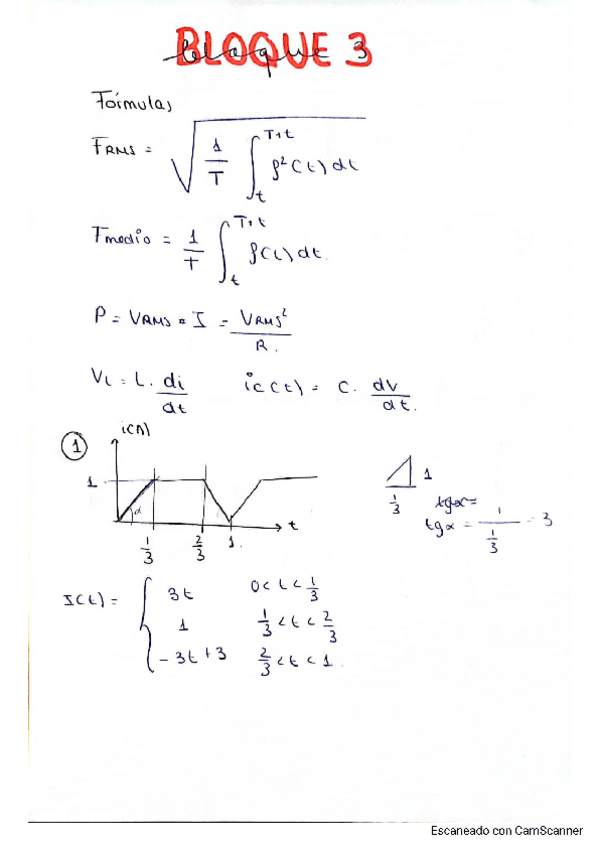 BLOQUE 3
Fórmulas
FRMS = √ 1/T ∫ₜᵀ⁺ᵗ f²(t) dt
Fmedio = 1/T ∫ₜᵀ⁺ᵗ f(t) dt.
P = VRMS · I = VRMS²/R.
VL = L. di/dt   ic(t) = C. dv/dt.
① i(A)
1
α
t
1/3 2/3 1.
1
1/3
tgα =
tgα = 1/(1/3) = 3
I(t) = { 3t   0<t<1/3
1   1/3<t<2/3
-3t+3   2/3<t<1.
Escaneado con CamScanner